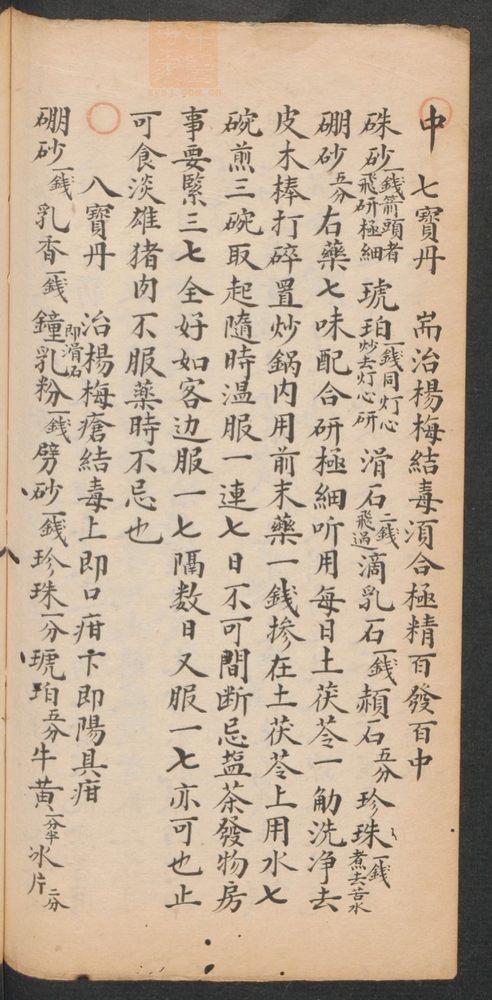 中 七寶丹 耑治楊梅結毒須合極精百發百中
硃砂一錢箭頭者飛研極細 琥珀一錢同灯心炒去灯心研 滑石二錢飛過滴乳石一錢頳石五分 珍珠一錢煮去苦水
硼砂五分 右藥七味配合研極細听用每日土茯苓一觔洗净去
皮木棒打碎置炒鍋内用前末藥一錢摻在土茯苓上用水七
碗煎三碗取起隨時温服一連七日不可間断忌盐茶發物房
事要緊三七全好如客边服一七隔数日又服一七亦可也止
可食淡雄猪肉不服藥時不忌也
八寶丹 治楊梅瘡結毒上即口疳卞即陽具疳
硼砂一錢 乳香一錢 鐘乳粉即滑石一錢 劈砂一錢珍珠一分琥珀五分牛黄一分半冰片二分